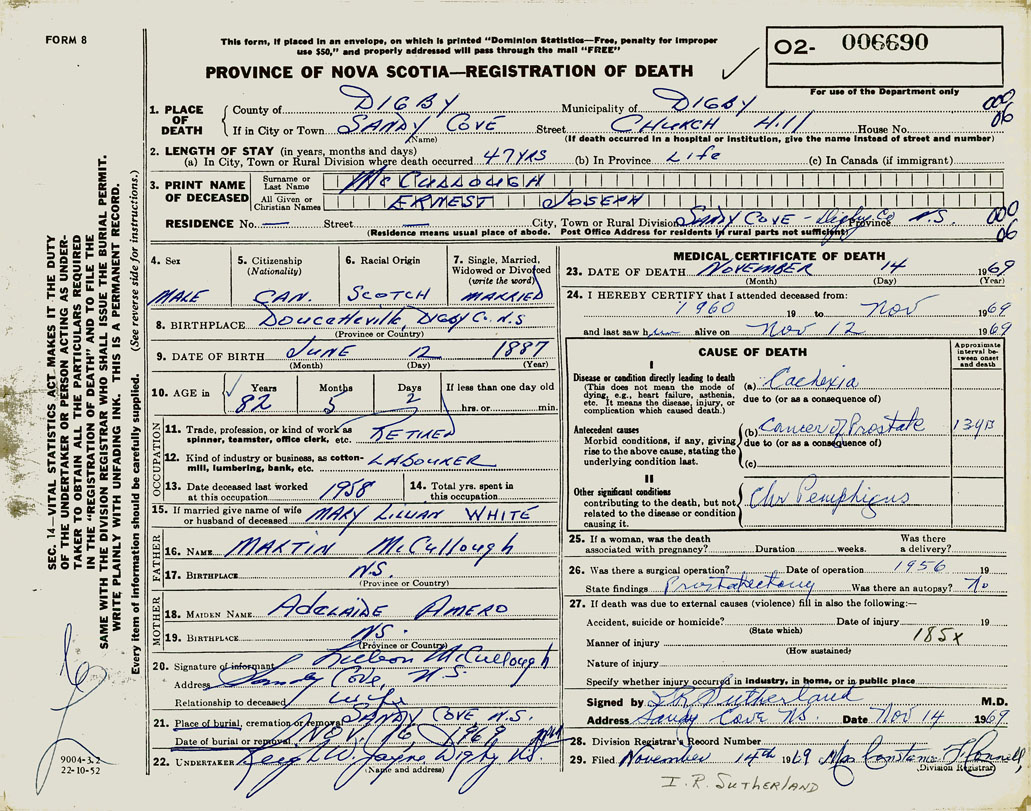 FORM 8
This form, if placed in an envelope, on which is printed "Dominion Statistics—Free, penalty for improper
use $50," and properly addressed will pass through the mail "FREE"
PROVINCE OF NOVA SCOTIA—REGISTRATION OF DEATH
02- 006690
For use of the Department only
1. PLACE OF DEATH
County of DIGBY Municipality of DIGBY 000
If in City or Town SANDY COVE Street CHURCH Hill House No. 06
(Name) (If death occurred in a hospital or institution, give the name instead of street and number)
2. LENGTH OF STAY (in years, months and days)
(a) In City, Town or Rural Division where death occurred 47 YRS (b) In Province Life (c) In Canada (if immigrant)
3. PRINT NAME OF DECEASED
Surname or Last Name McCULLOUGH
All Given or Christian Names ERNEST JOSEPH
RESIDENCE No. — Street — City, Town or Rural Division SANDY COVE - Digby Co Province N.S. 000
(Residence means usual place of abode. Post Office Address for residents in rural parts not sufficient) 06
4. Sex MALE
5. Citizenship (Nationality) CAN.
6. Racial Origin SCOTCH
7. Single, Married, Widowed or Divorced (write the word) MARRIED
8. BIRTHPLACE Doucetteville, DIGBY Co. N.S
(Province or Country)
9. DATE OF BIRTH JUNE 12 1887
(Month) (Day) (Year)
10. AGE in Years 82 Months 5 Days 2 If less than one day old hrs. or min.
OCCUPATION
11. Trade, profession, or kind of work as spinner, teamster, office clerk, etc. RETIRED
12. Kind of industry or business, as cotton-mill, lumbering, bank, etc. LABOURER
13. Date deceased last worked at this occupation 1958
14. Total yrs. spent in this occupation
15. If married give name of wife or husband of deceased MARY LILLIAN WHITE
FATHER
16. NAME MARTIN McCullough
17. BIRTHPLACE N.S.
(Province or Country)
MOTHER
18. MAIDEN NAME ADELAIDE AMERO
19. BIRTHPLACE N.S.
(Province or Country)
20. Signature of informant McCullough
Address Sandy Cove, N.S.
Relationship to deceased wife
21. Place of burial, cremation or removal SANDY COVE N.S.
Date of burial or removal NOV. 16 1969
22. UNDERTAKER W. Jayne Digby N.S.
(Name and address)
MEDICAL CERTIFICATE OF DEATH
23. DATE OF DEATH NOVEMBER 14 1969
(Month) (Day) (Year)
24. I HEREBY CERTIFY that I attended deceased from:
1960 19 to Nov 1969
and last saw him alive on Nov 12 1969
CAUSE OF DEATH
Approximate interval between onset and death
I
Disease or condition directly leading to death
(This does not mean the mode of dying, e.g., heart failure, asthenia, etc. It means the disease, injury, or complication which caused death.)
(a) Cachexia
due to (or as a consequence of)
Antecedent causes
Morbid conditions, if any, giving rise to the above cause, stating the underlying condition last.
(b) Cancer of Prostate
due to (or as a consequence of)
(c)
II
Other significant conditions
contributing to the death, but not related to the disease or condition causing it.
Chr Pemphigus
25. If a woman, was the death associated with pregnancy? Duration weeks. Was there a delivery?
26. Was there a surgical operation? Date of operation 1956 19
State findings Prostatectomy Was there an autopsy? No
27. If death was due to external causes (violence) fill in also the following:—
Accident, suicide or homicide? Date of injury 19
(State which) 185x
Manner of injury
(How sustained)
Nature of injury
Specify whether injury occured in industry, in home, or in public place
Signed by I.R. Sutherland M.D.
Address Sandy Cove N.S. Date Nov 14 1969
28. Division Registrar's Record Number
29. Filed November 14th 1969 Mrs Constance
(Division Registrar)
I. R. SUTHERLAND
SEC. 14—VITAL STATISTICS ACT MAKES IT THE DUTY
OF THE UNDERTAKER OR PERSON ACTING AS UNDER-
TAKER TO OBTAIN ALL THE PARTICULARS REQUIRED
IN THE "REGISTRATION OF DEATH" AND TO FILE THE
SAME WITH THE DIVISION REGISTRAR WHO SHALL ISSUE THE BURIAL PERMIT.
WRITE PLAINLY WITH UNFADING INK. THIS IS A PERMANENT RECORD.
Every item of information should be carefully supplied. (See reverse side for instructions.)
9004-3.2
22-10-52